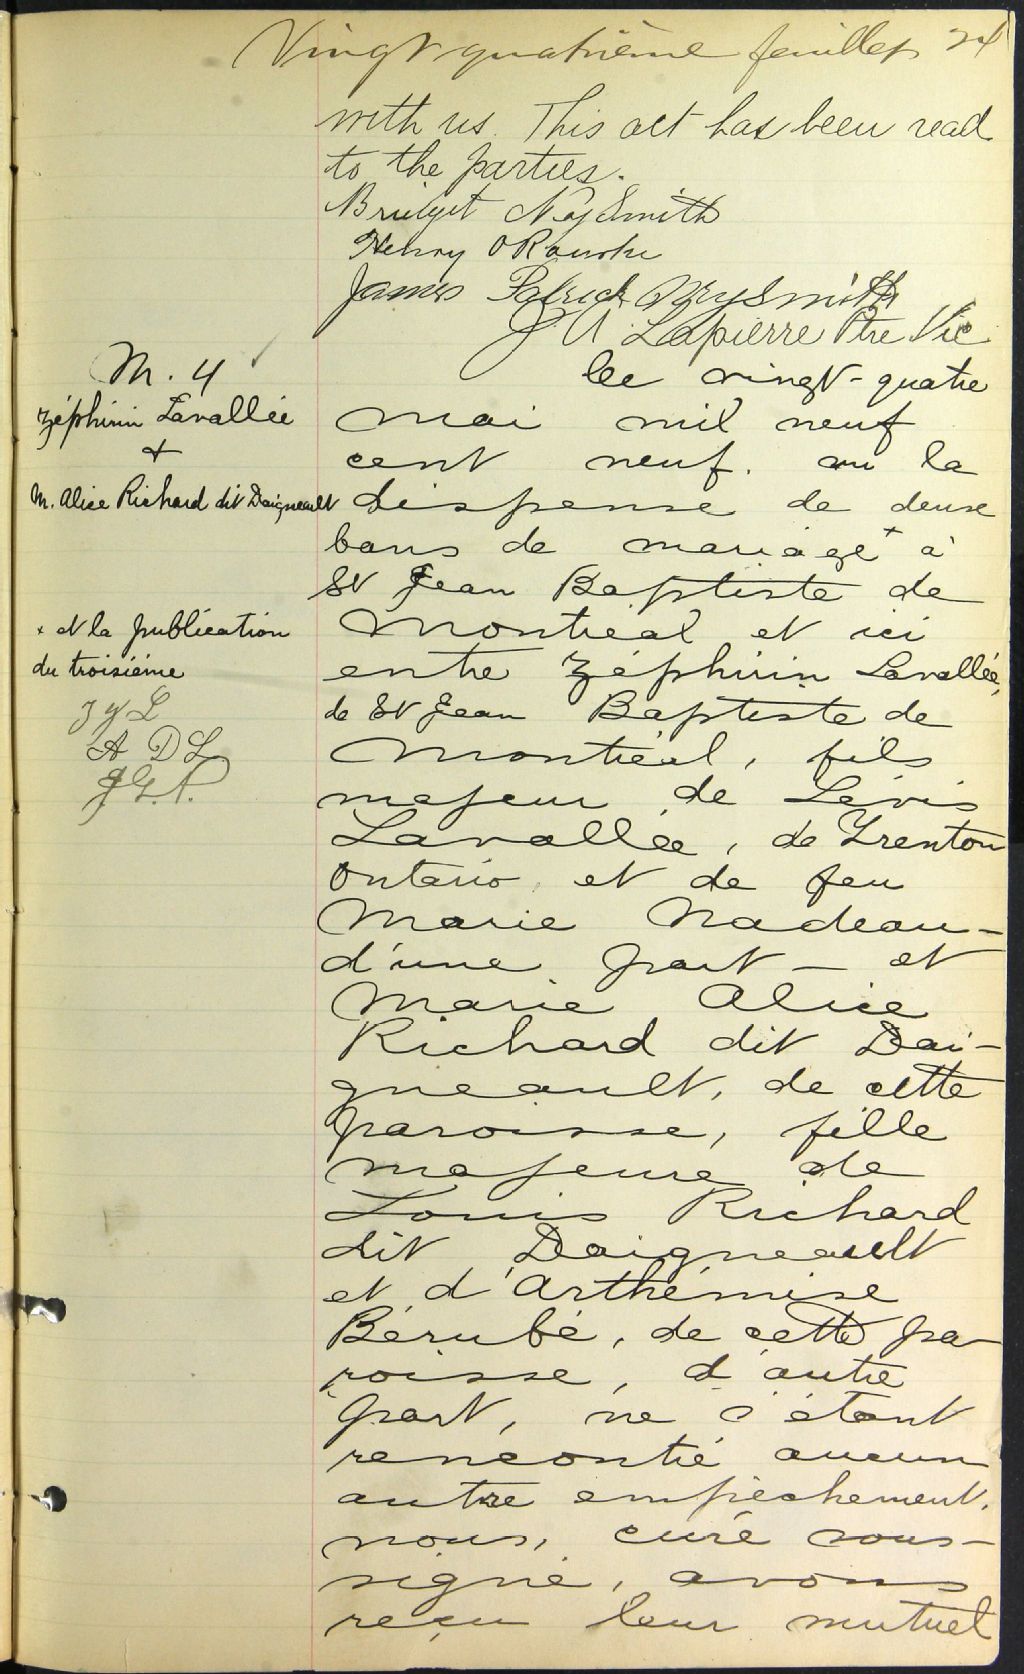 Vingt quatrième feuillet 24
with us. This act has been read
to the parties.
Bridget NySmith
Henry O'Rourke
James Patrick NySmith
J A Lapierre Ptre Vic
M. 4
Zéphirin Lavallée
+
M. Alice Richard dit Daigneault
+ et la publication
du troisième
Z y L
A D L
Lee vingt-quatre
mai mil neuf
cent neuf. vu la
dispense de deux
bans de mariage + à
St Jean Baptiste de
Montreal et ici
entre Zéphirin Lavallée,
de St Jean Baptiste de
Montréal, fils
majeur de Lévis
Lavallée, de Trenton
Ontario, et de feu
Marie Nadeau-
d'une part - et
Marie Alice
Richard dit Dai-
gneault, de cette
paroisse, fille
majeure de
Louis Richard
dit Daigneault
et d'Arthémise
Bérubé, de cette pa-
roisse, d'autre
part, ne s'étant
rencontré aucun
autre empêchement,
nous, curé sous-
signé, avons
reçu leur mutuel